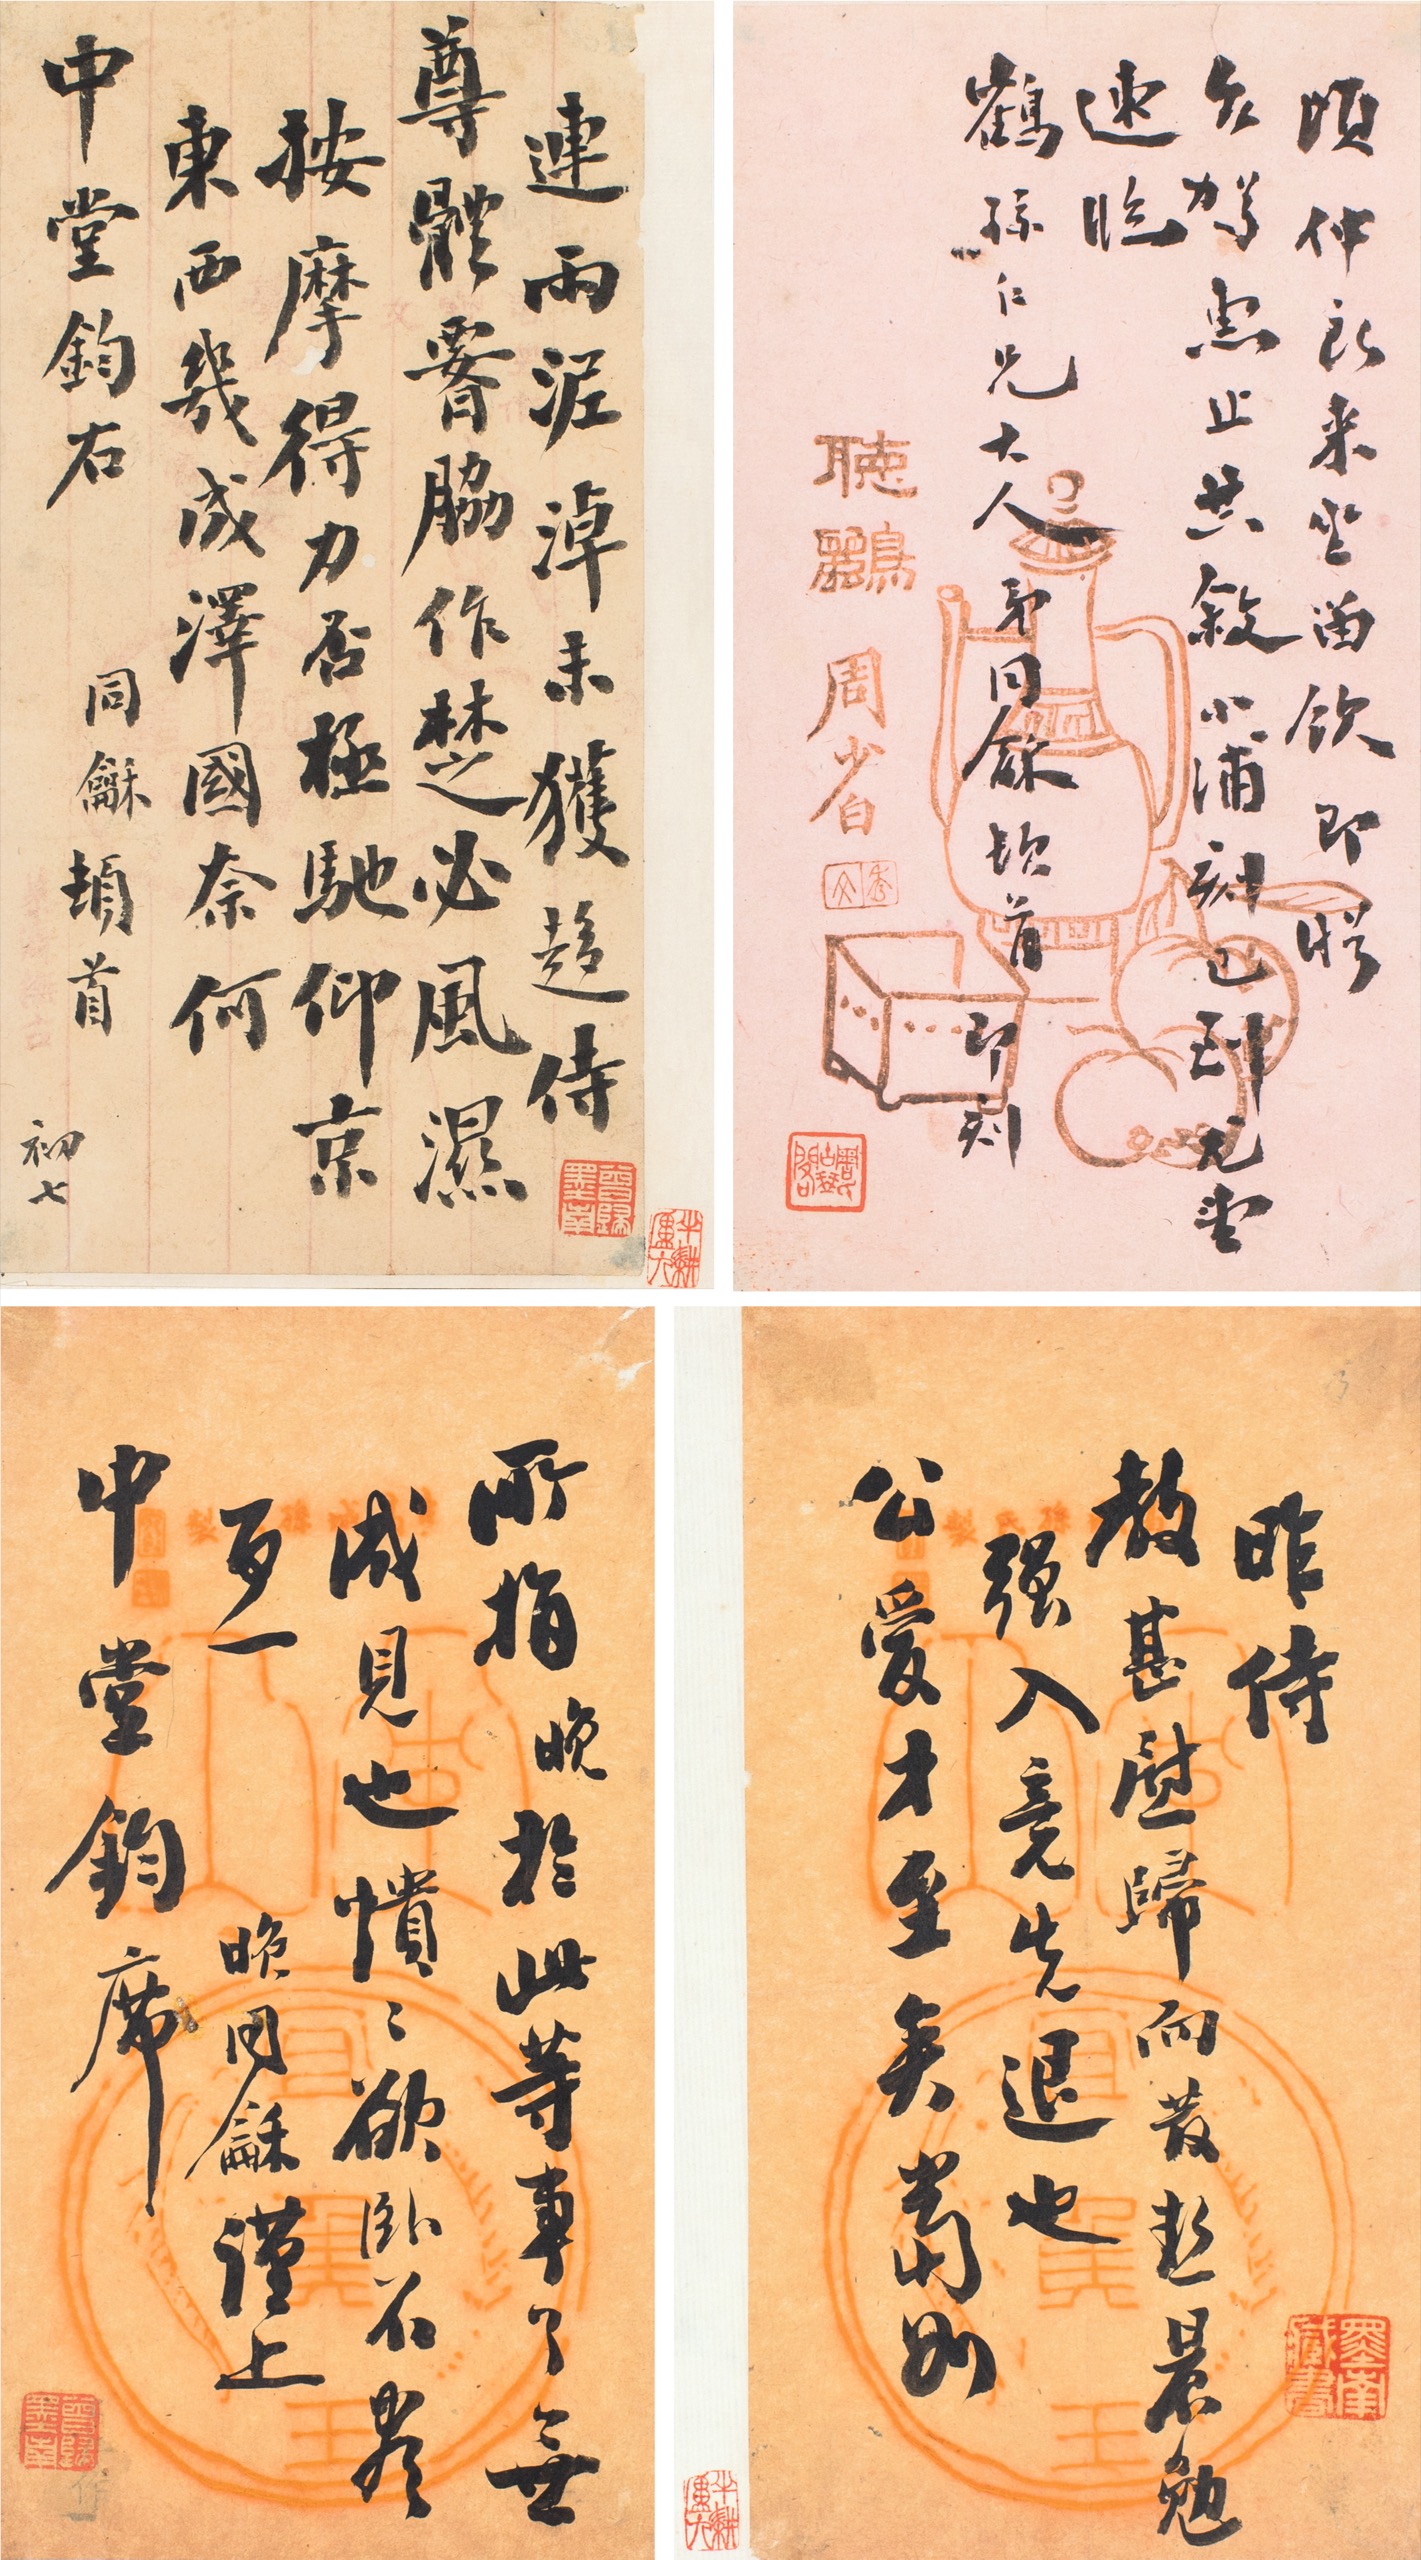 連雨泥淖未獲趨侍
尊體膂脇作楚必風濕
按摩得力否極馳仰京
東西幾成澤國奈何
中堂鈞右
同龢頓首
初七
頃仲良來坐留飲即
台駕惠止共敘小浦刻已到兄盍
速臨
鶴孫仁兄大人
弟同龢頓首
即刻
聽鸝
周少白
昨侍
教甚慰歸而發熱晨勉
強入竟先退也
公愛才至矣當別
所指晚於此等事了無
成見也憒〻欲臥不盡
百一
晚同龢謹上
中堂鈞席